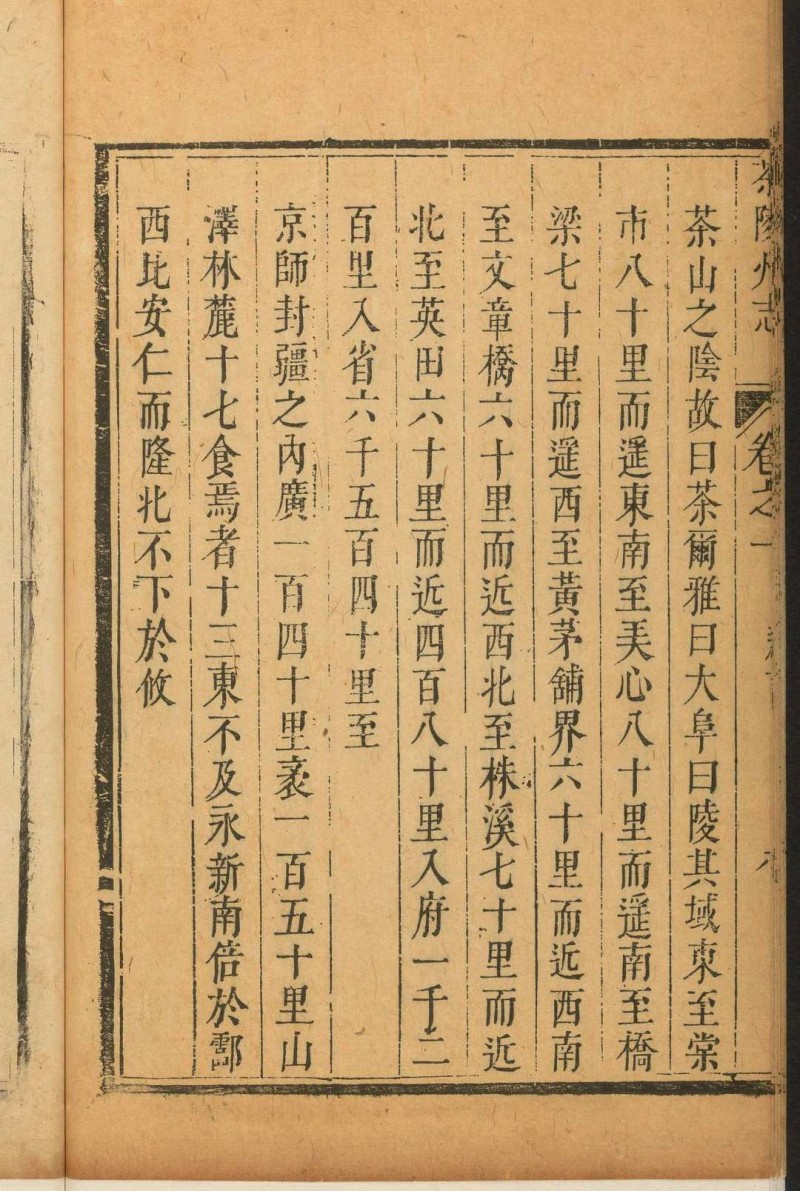 茶陵州志 卷之一
茶山之陰故曰茶爾雅曰大阜曰陵其域東至棠
市八十里而遥東南至美心八十里而遥南至橋
梁七十里而遥西至黃茅舖界六十里而近西南
至文章橋六十里而近西北至株溪七十里而近
北至英田六十里而近四百八十里入府一千二
百里入省六千五百四十里至
京師封疆之內廣一百四十里袤一百五十里山
澤林麓十七食焉者十三東不及永新南倍於酃
西比安仁而隆北不下於攸